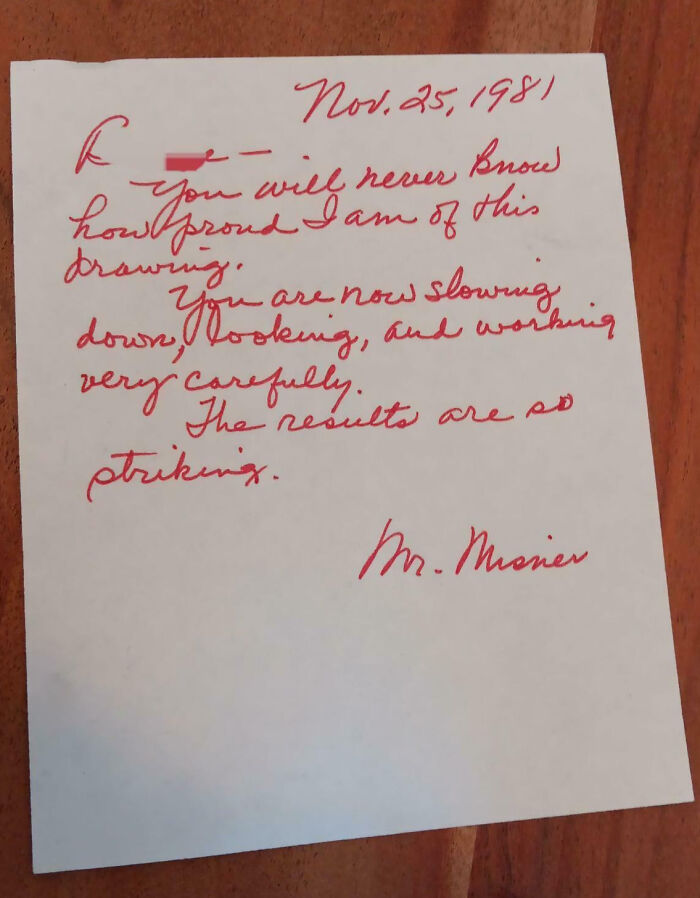 Nov. 25, 1981
You will never know
how proud I am of this
drawing.
You are now slowing
down, looking, and working
very carefully.
The results are so
striking.
Mr. Misner